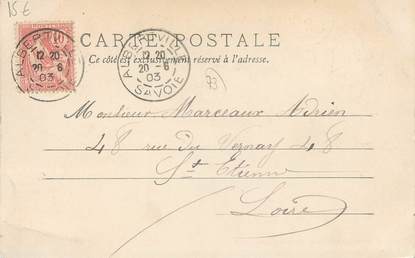 15 €
CARTE POSTALE
Ce côté est exclusivement réservé à l'adresse.
10
ALBERTVILLE
12 20
20 - 6
03
SAVOIE
ALBERTV
12 20
20 6
03
73
Monsieur Marceaux Adrien
48 rue du Vernay 48
St Etienne
Loire